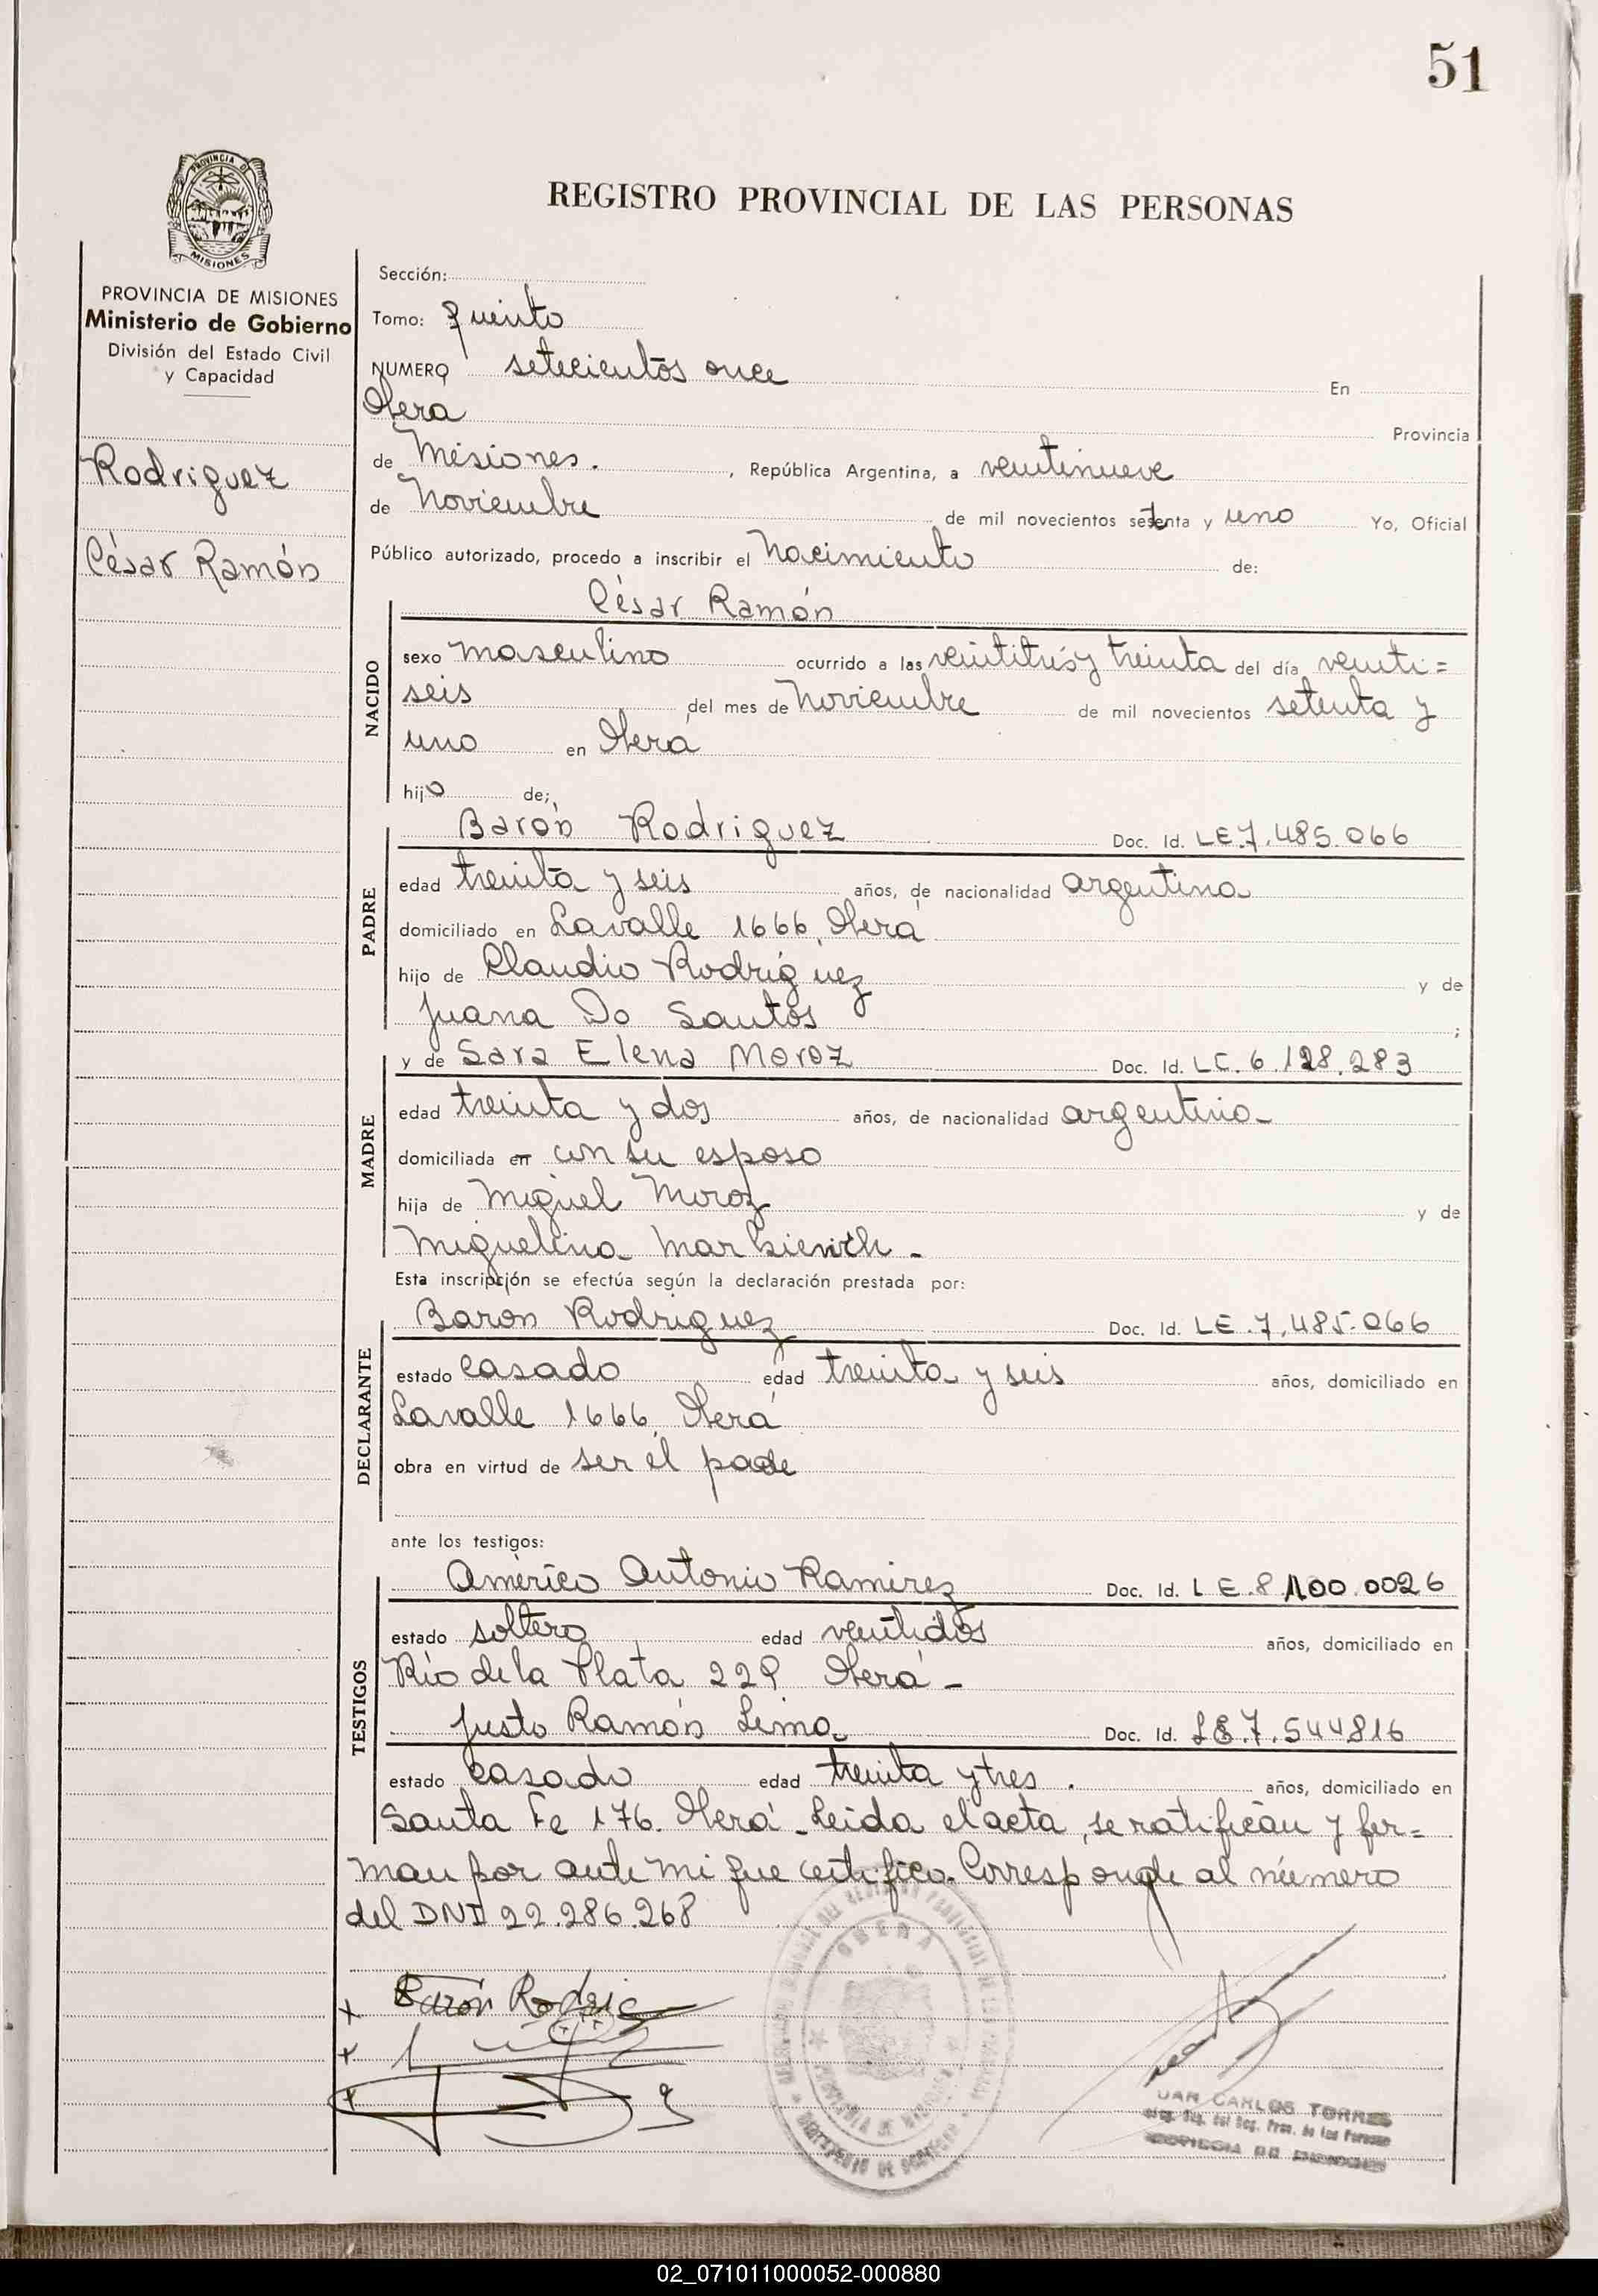 51
PROVINCIA DE
MISIONES
REGISTRO PROVINCIAL DE LAS PERSONAS
PROVINCIA DE MISIONES
Ministerio de Gobierno
División del Estado Civil
y Capacidad
Rodriguez
César Ramón
Sección:
Tomo: Quinto
NUMERO setecientos once En
Oberá Provincia
de Misiones. , República Argentina, a veintinueve
de Noviembre de mil novecientos setenta y uno Yo, Oficial
Público autorizado, procedo a inscribir el Nacimiento de:
César Ramón
NACIDO
sexo masculino ocurrido a las veintitrés y treinta del día veinti=
seis del mes de Noviembre de mil novecientos setenta y
uno en Oberá
hijo de;
PADRE
Barón Rodriguez Doc. Id. LE.7.485.066
edad treinta y seis años, de nacionalidad argentina
domiciliado en Lavalle 1666, Oberá
hijo de Claudio Rodriguez y de
Juana Do Santos ;
MADRE
y de Sara Elena Moroz Doc. Id. LC.6.128.283
edad treinta y dos años, de nacionalidad argentina
domiciliada en con su esposo
hija de Miguel Moroz y de
Miguelina
Esta inscripción se efectúa según la declaración prestada por:
DECLARANTE
Baron Rodriguez Doc. Id. LE.7.485.066
estado casado edad treinta y seis años, domiciliado en
Lavalle 1666, Oberá
obra en virtud de ser el padre
ante los testigos:
TESTIGOS
Américo Antonio Ramirez Doc. Id. LE.8.100.0026
estado soltero edad veintidós años, domiciliado en
Río de la Plata 229 Oberá -
Justo Ramón Lima Doc. Id. LE.7.544816
estado casado edad treinta y tres . años, domiciliado en
Santa Fe 176. Oberá - Leida el acta, se ratifican y fir=
man por ante mi que certifico. Corresponde al número
del DNI 22.286.268
Barón Rodrig
OBERA
JUAN CARLOS TORRES
02_071011000052-000880